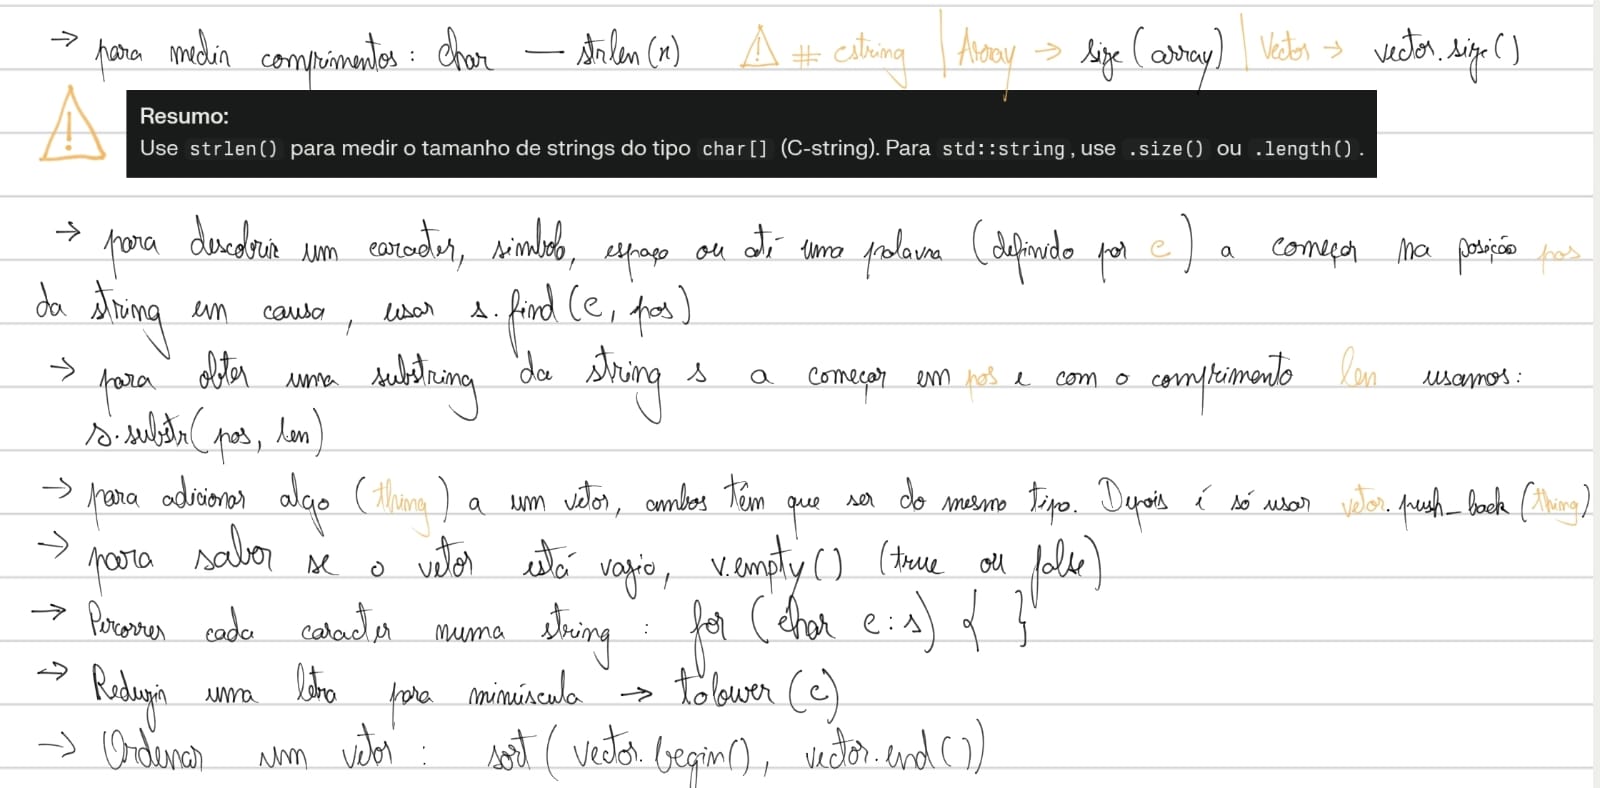 → para medir comprimentos: char — strlen(x) ⚠ # cstring | Array → size(array) | Vector → vector.size()
Resumo:
Use strlen() para medir o tamanho de strings do tipo char[] (C-string). Para std::string, use .size() ou .length().
→ para descobrir um caracter, simbolo, espaço ou até uma palavra (definido por c) a começar na posição pos
da string em causa, usar s.find(c, pos)
→ para obter uma substring da string s a começar em pos e com o comprimento len usamos:
s.substr(pos, len)
→ para adicionar algo (thing) a um vetor, ambos têm que ser do mesmo tipo. Depois é só usar vetor.push_back(thing)
→ para saber se o vetor está vazio, v.empty() (true ou false)
→ Percorrer cada caracter numa string : for (char c:s) { }
→ Reduzir uma letra para minúscula → tolower(c)
→ Ordenar um vetor : sort(vector.begin(), vector.end())